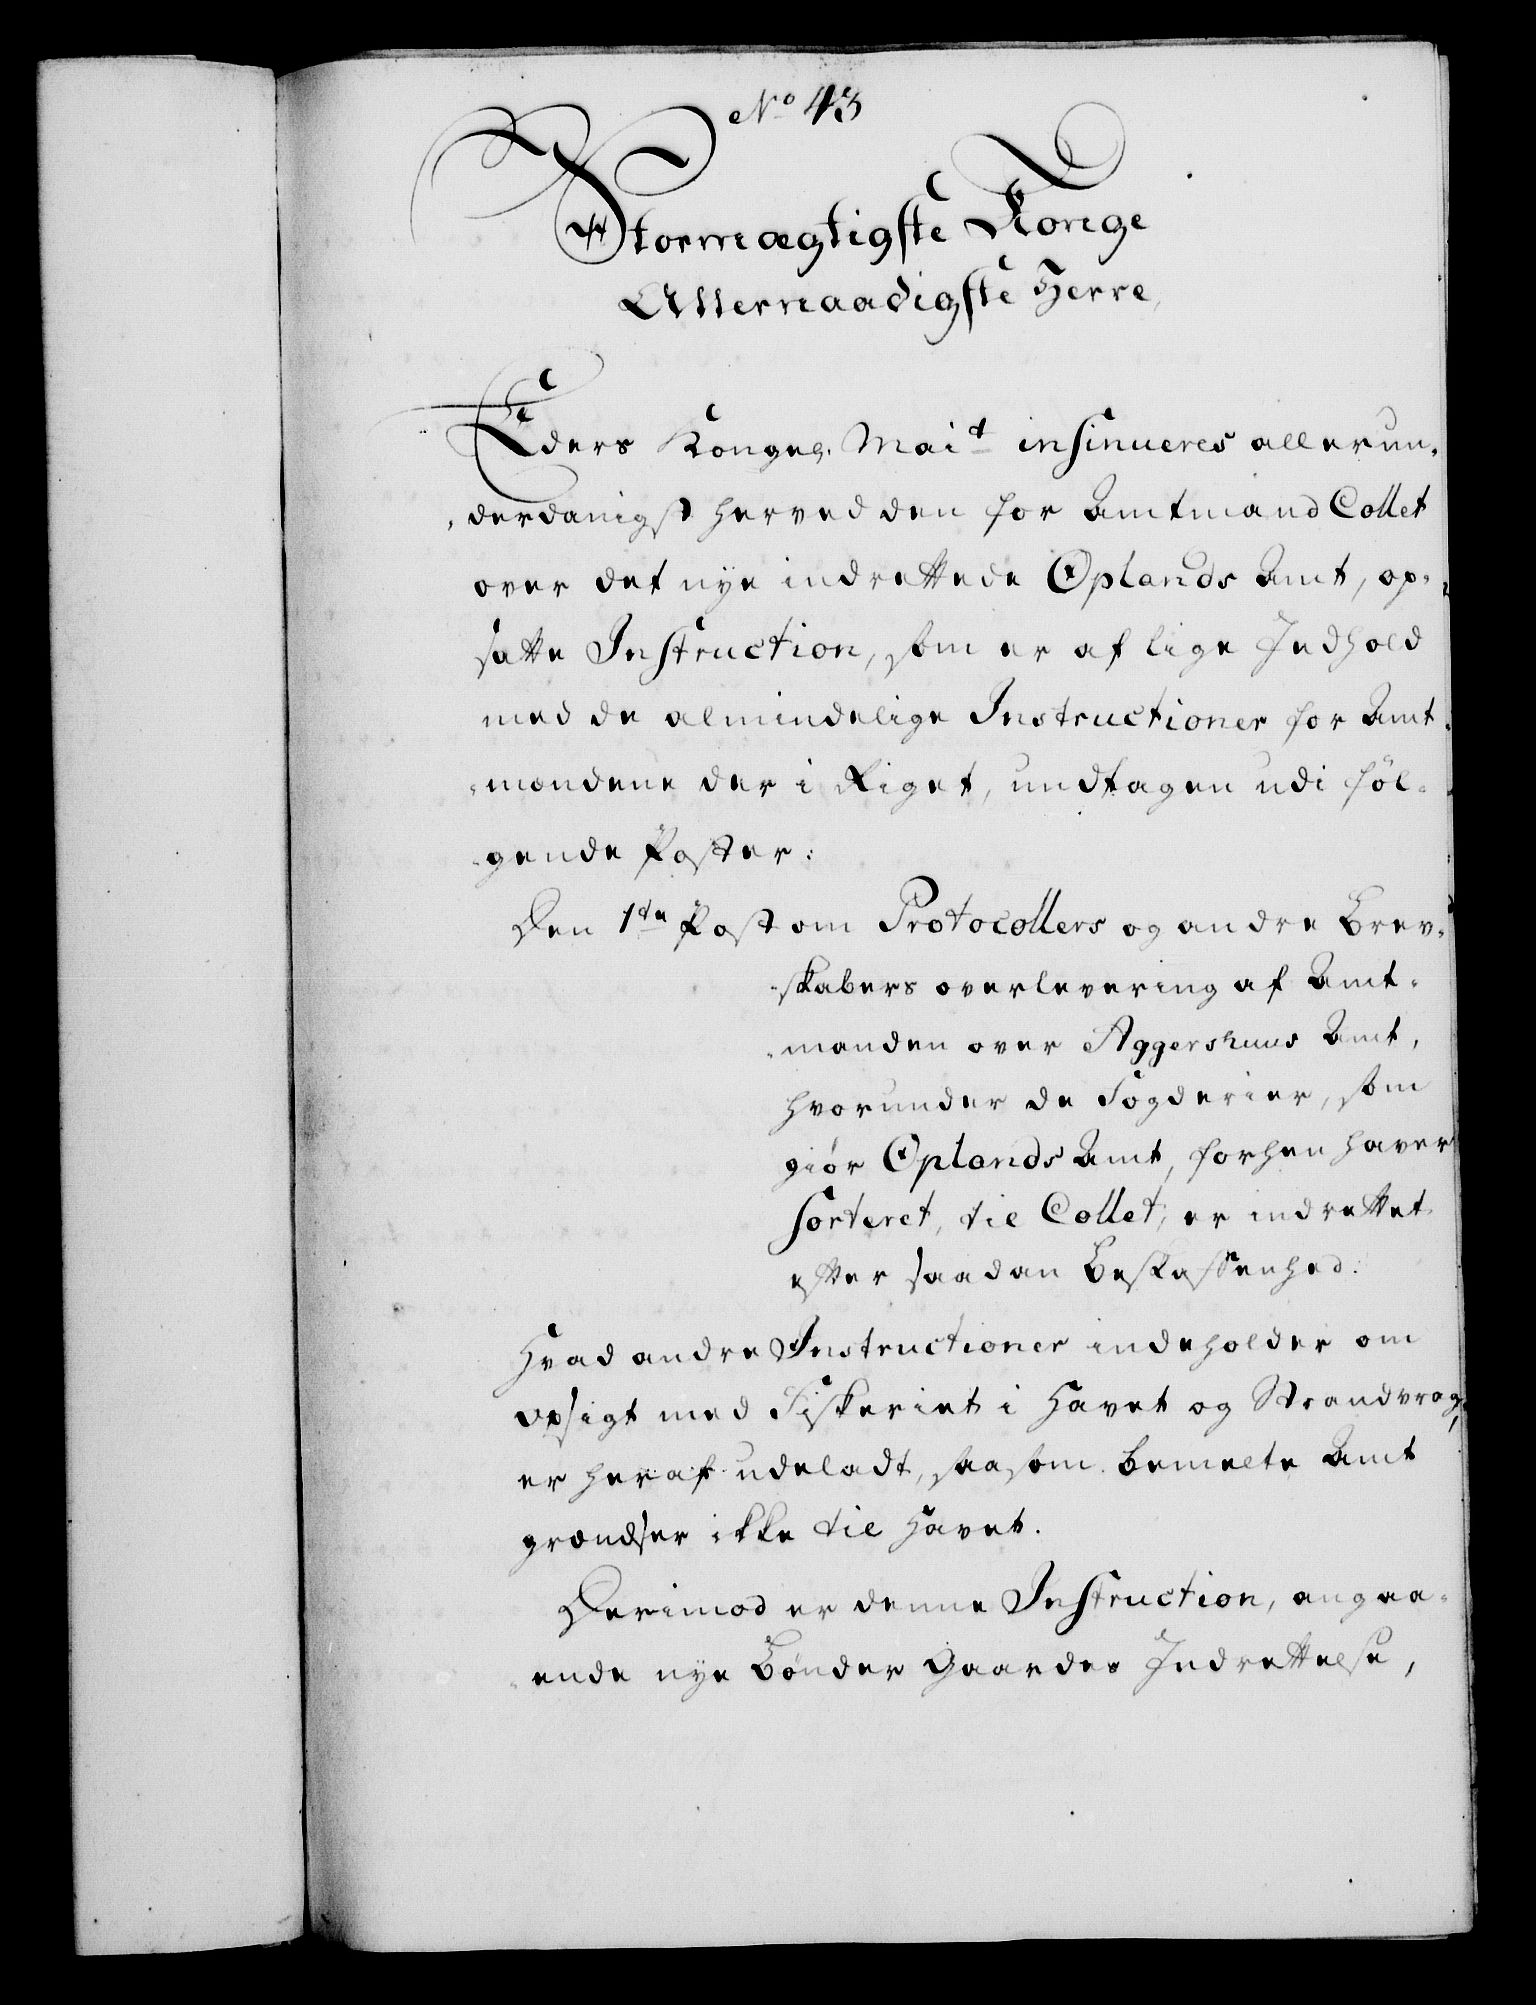 No 43
Stormægtigste Konge
Allernaadigste Herre,
Eders Kongel. Mait insinueres allerun-
-derdanigst herved den for Amtmand Collet
over det nye indrettede Oplands Amt, op-
satte Instruction, som er af lige Indhold
med de almindelige Instructioner for Amt-
-mændene der i Riget, undtagen udi føl-
-gende Poster:
Den 1te Post om Protocollers og andre Brev-
-skabers overlevering af Amt-
-manden over Aggershuus Amt,
hvorunder de Fogderier, som
giør Oplands Amt, forhen haver
sorteret, til Collet, er indrettet
efter saadan Beskaffenhed.
Hvad andre Instructioner indeholder om
opsigt med Fiskeriet i Havet og Strandvrag,
er heraf udeladt, saasom bemelte Amt
grændser ikke til Havet.
Derimod er denne Instruction, angaa-
-ende nye Bønder Gaardes Indrettelse,